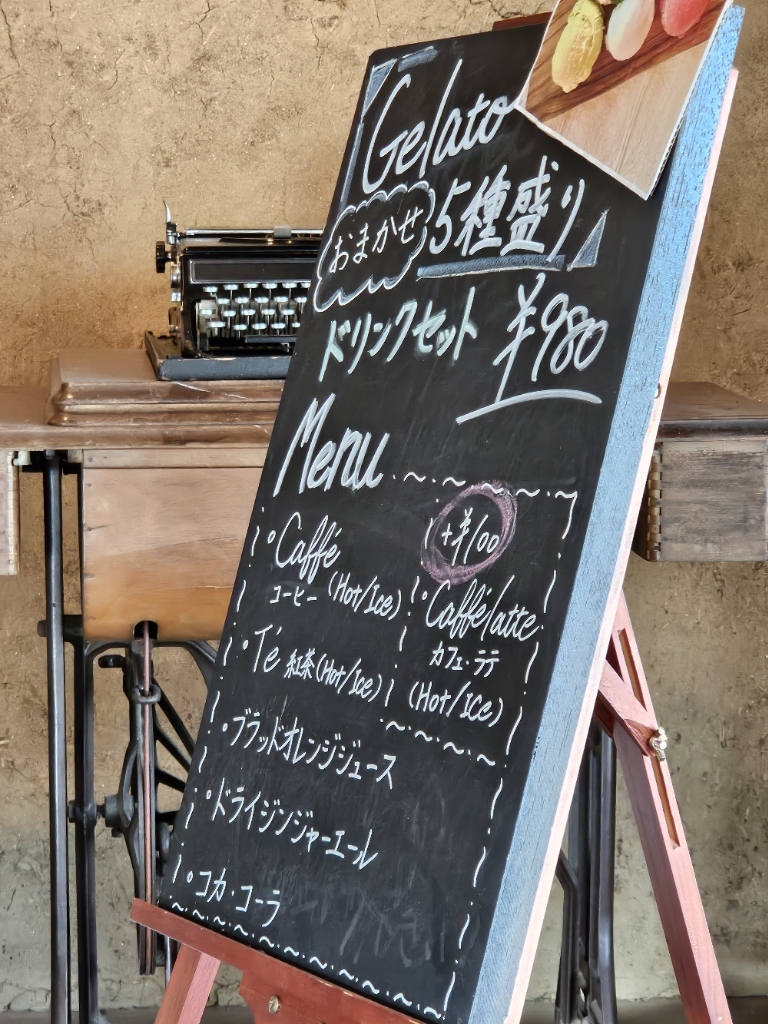 Gelato
おまかせ 5種盛り
ドリンクセット ¥980
Menu
+¥100
・Caffé
コーヒー (Hot/Ice)
・Caffélatte
カフェ・ラテ
(Hot/Ice)
・Té 紅茶 (Hot/Ice)
・ブラッドオレンジジュース
・ドライジンジャーエール
・コカ・コーラ